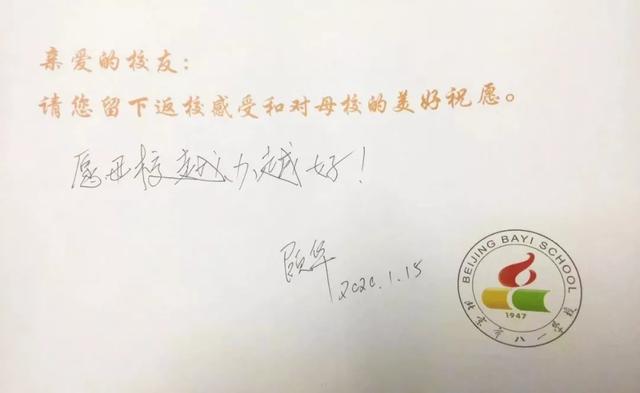 亲爱的校友：
请您留下返校感受和对母校的美好祝愿。
愿母校越办越好！
顾华
2020.1.15
BEIJING BAYI SCHOOL
1947
北京市八一学校